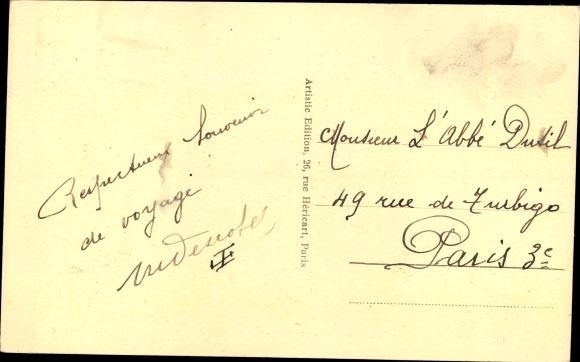 Respectueux Souvenir
de voyage
Artistic Edition, 26, rue Héricart, Paris
Monsieur L'Abbé Dutil
49 rue de Turbigo
Paris 3e